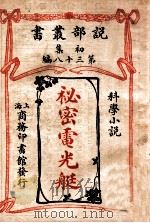 說部叢書
初集
第三十八編
科學小說
秘密電光艇
上海商務印書館發行